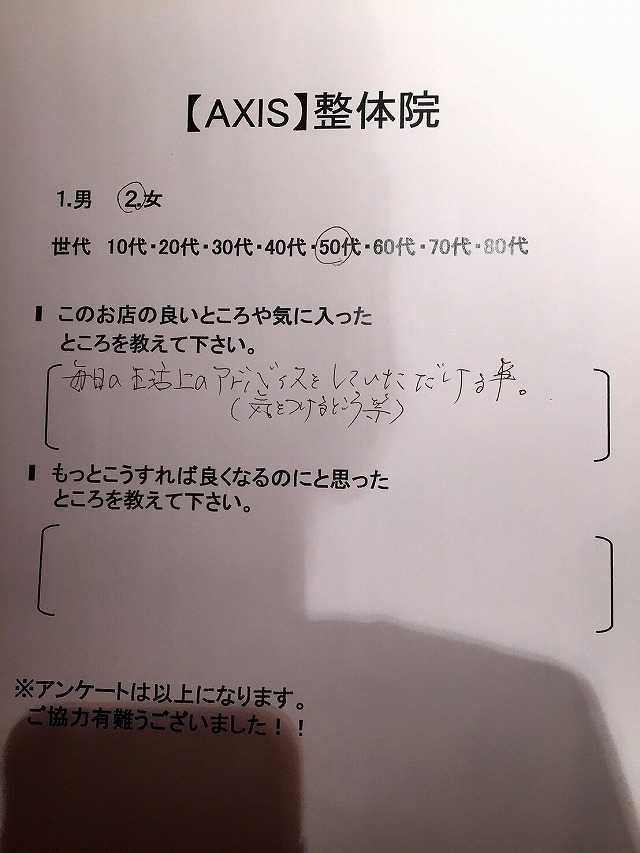 【AXIS】整体院
1.男　2.女
世代　10代・20代・30代・40代・50代・60代・70代・80代
このお店の良いところや気に入った
ところを教えて下さい。
毎日の生活上のアドバイスをしていただける事。
(気をつけるという
もっとこうすれば良くなるのにと思った
ところを教えて下さい。
※アンケートは以上になります。
ご協力有難うございました！！